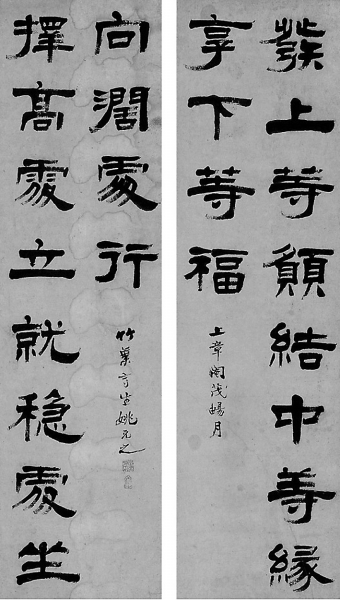 發上等願結中等緣
享下等福
上章閹茂暢月
擇高處立就穩處坐
向濶處行
竹葉亭生姚元之